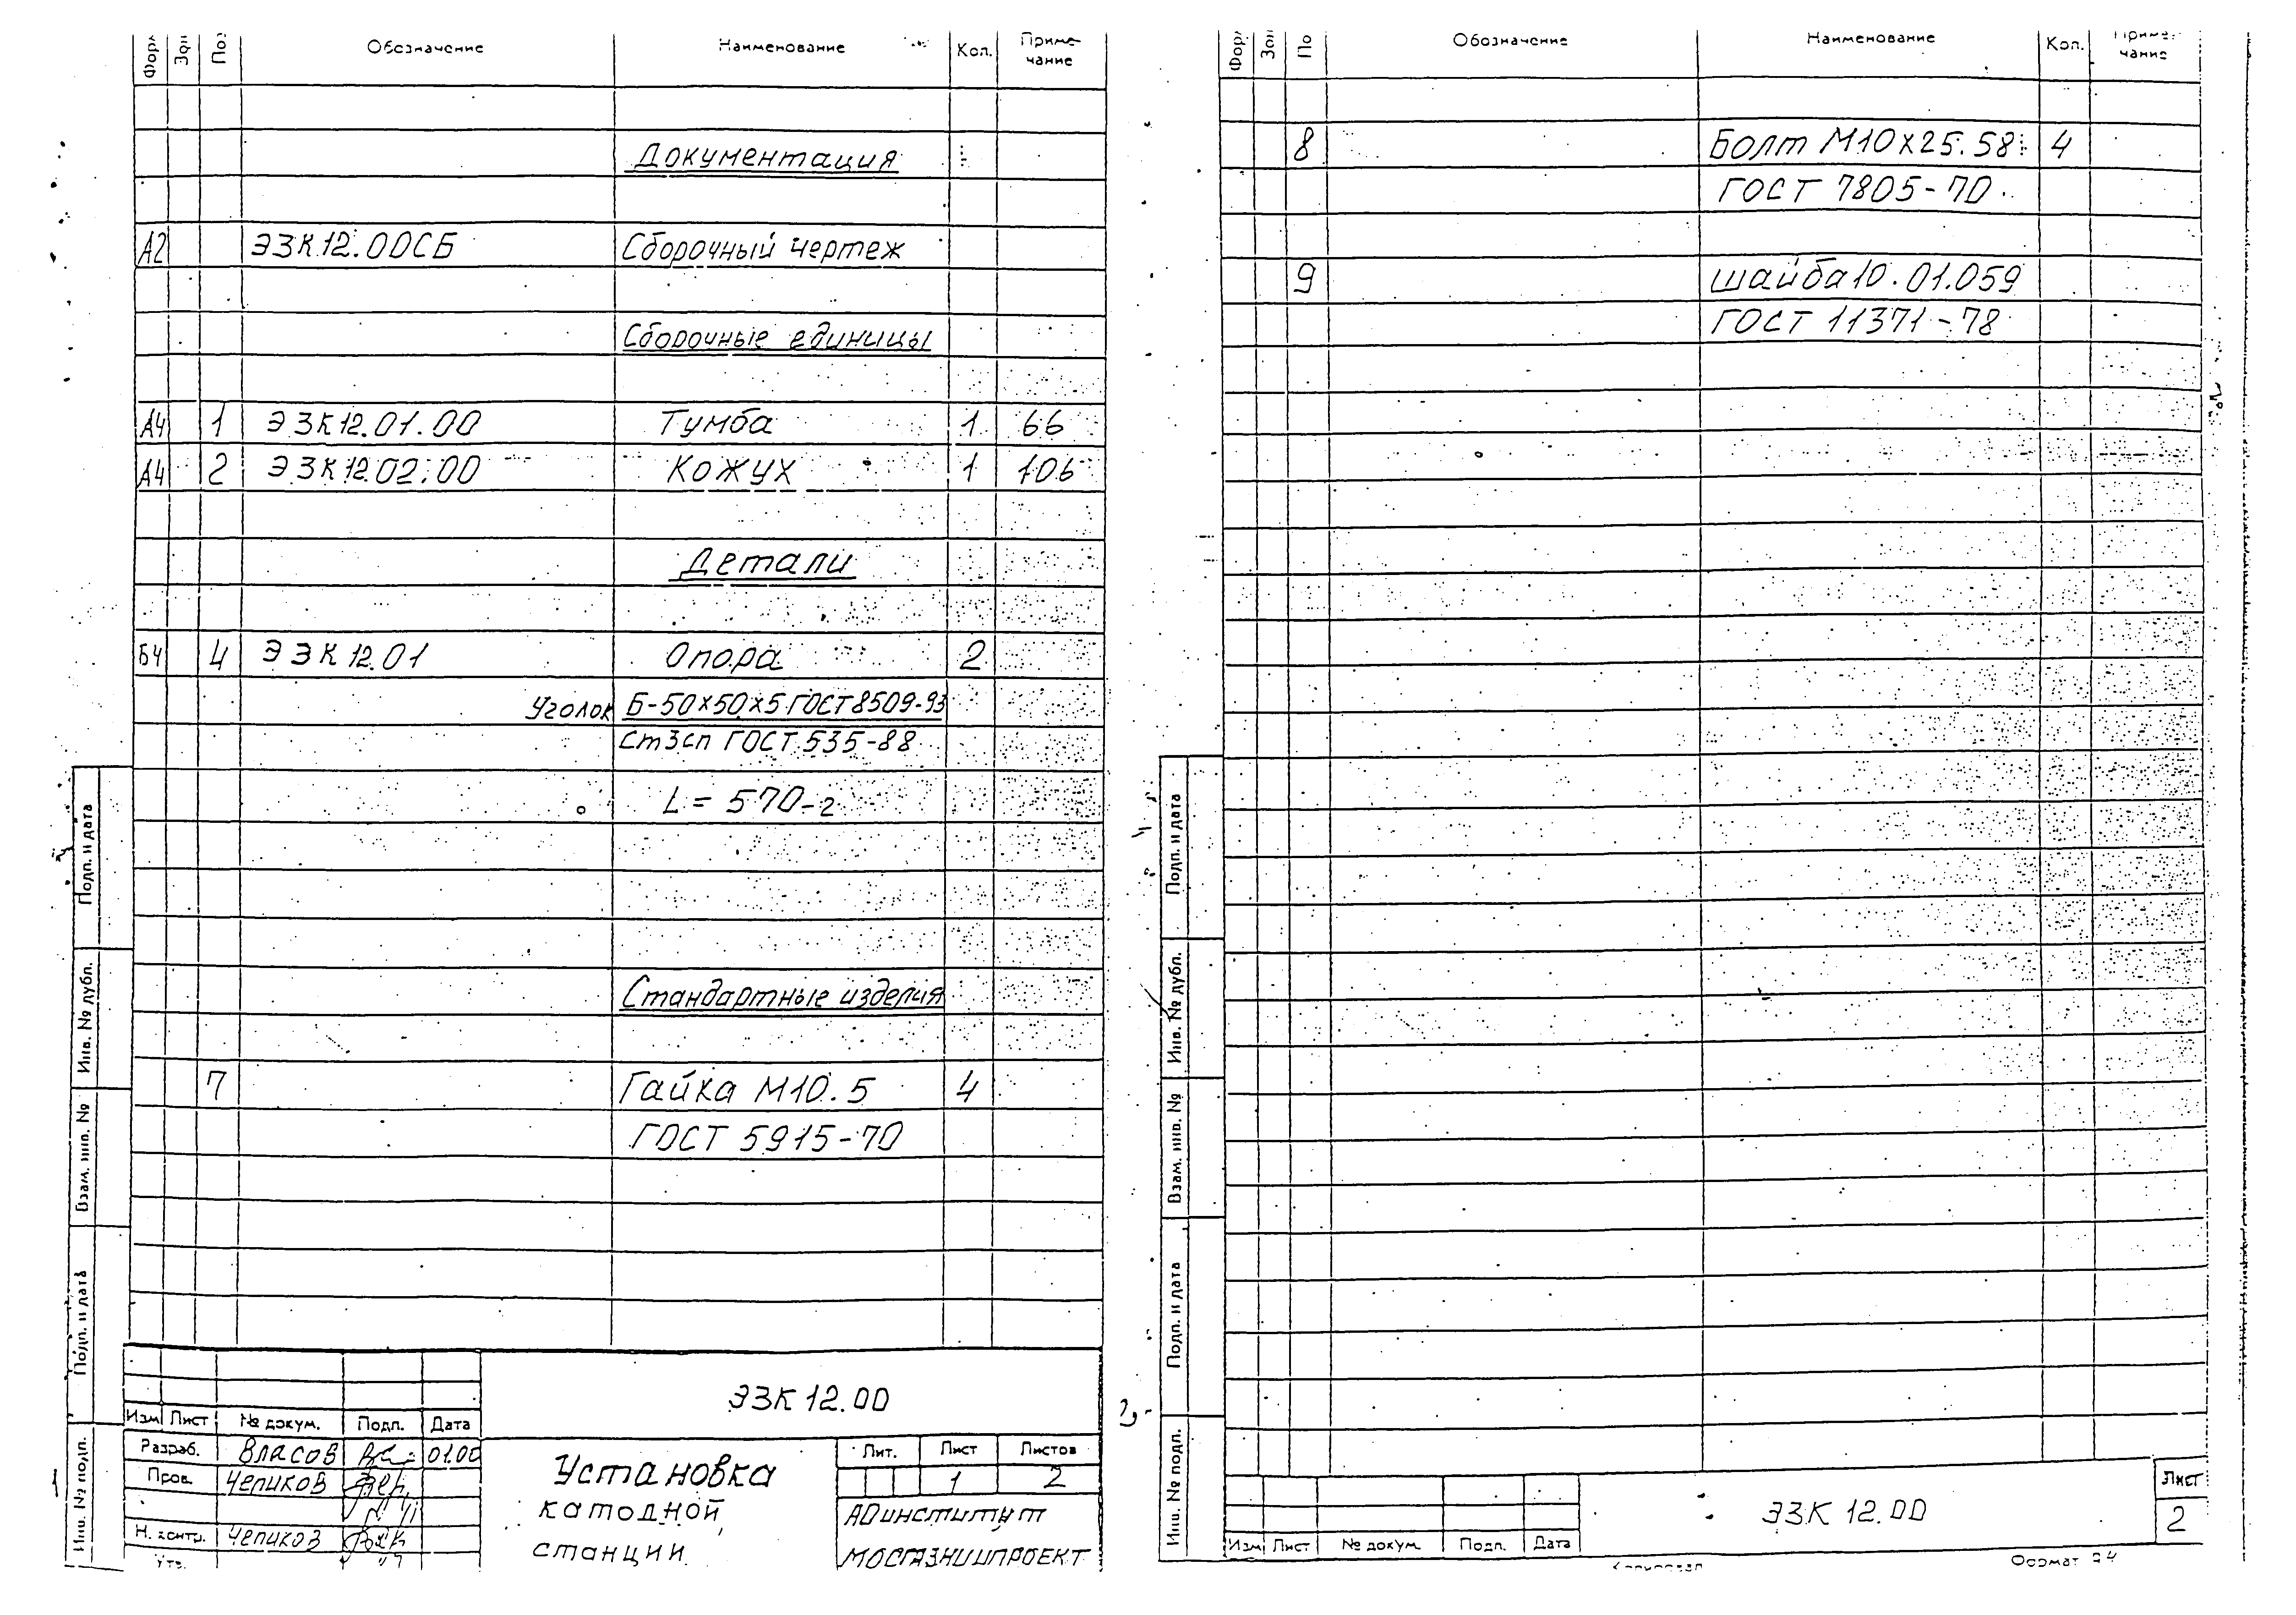 Обозначение Наименование Кол. Приме-
чание
Документация
А2 ЭЗК12.00СБ Сборочный чертеж
Сборочные единицы
А4 1 ЭЗК12.01.00 Тумба 1 66
А4 2 ЭЗК12.02.00 Кожух 1 106
Детали
Б4 4 ЭЗК12.01 Опора 2
Уголок Б-50х50х5 ГОСТ 8509-93
Ст3сп ГОСТ 535-88
L = 570-2
Стандартные изделия
7 Гайка М10.5 4
ГОСТ 5915-70
Подп. и дата
Инв. № дубл.
Взам. инв. №
Подп. и дата
Инв. № подл.
ЭЗК 12.00
Изм Лист № докум. Подп. Дата
Разраб. Власов 01.00
Пров. Чепиков
Н. контр. Чепиков
Утв.
Установка
катодной
станции
Лит. Лист Листов
1 2
АО институт
МОСГАЗНИИПРОЕКТ
Обозначение Наименование Кол. Приме-
чание
8 Болт М10х25.58 4
ГОСТ 7805-70
9 шайба 10.01.059
ГОСТ 11371-78
Подп. и дата
Инв. № дубл.
Взам. инв. №
Подп. и дата
Инв. № подл.
ЭЗК 12.00
Лист
2
Изм Лист № докум. Подп. Дата
Копировал Формат А4